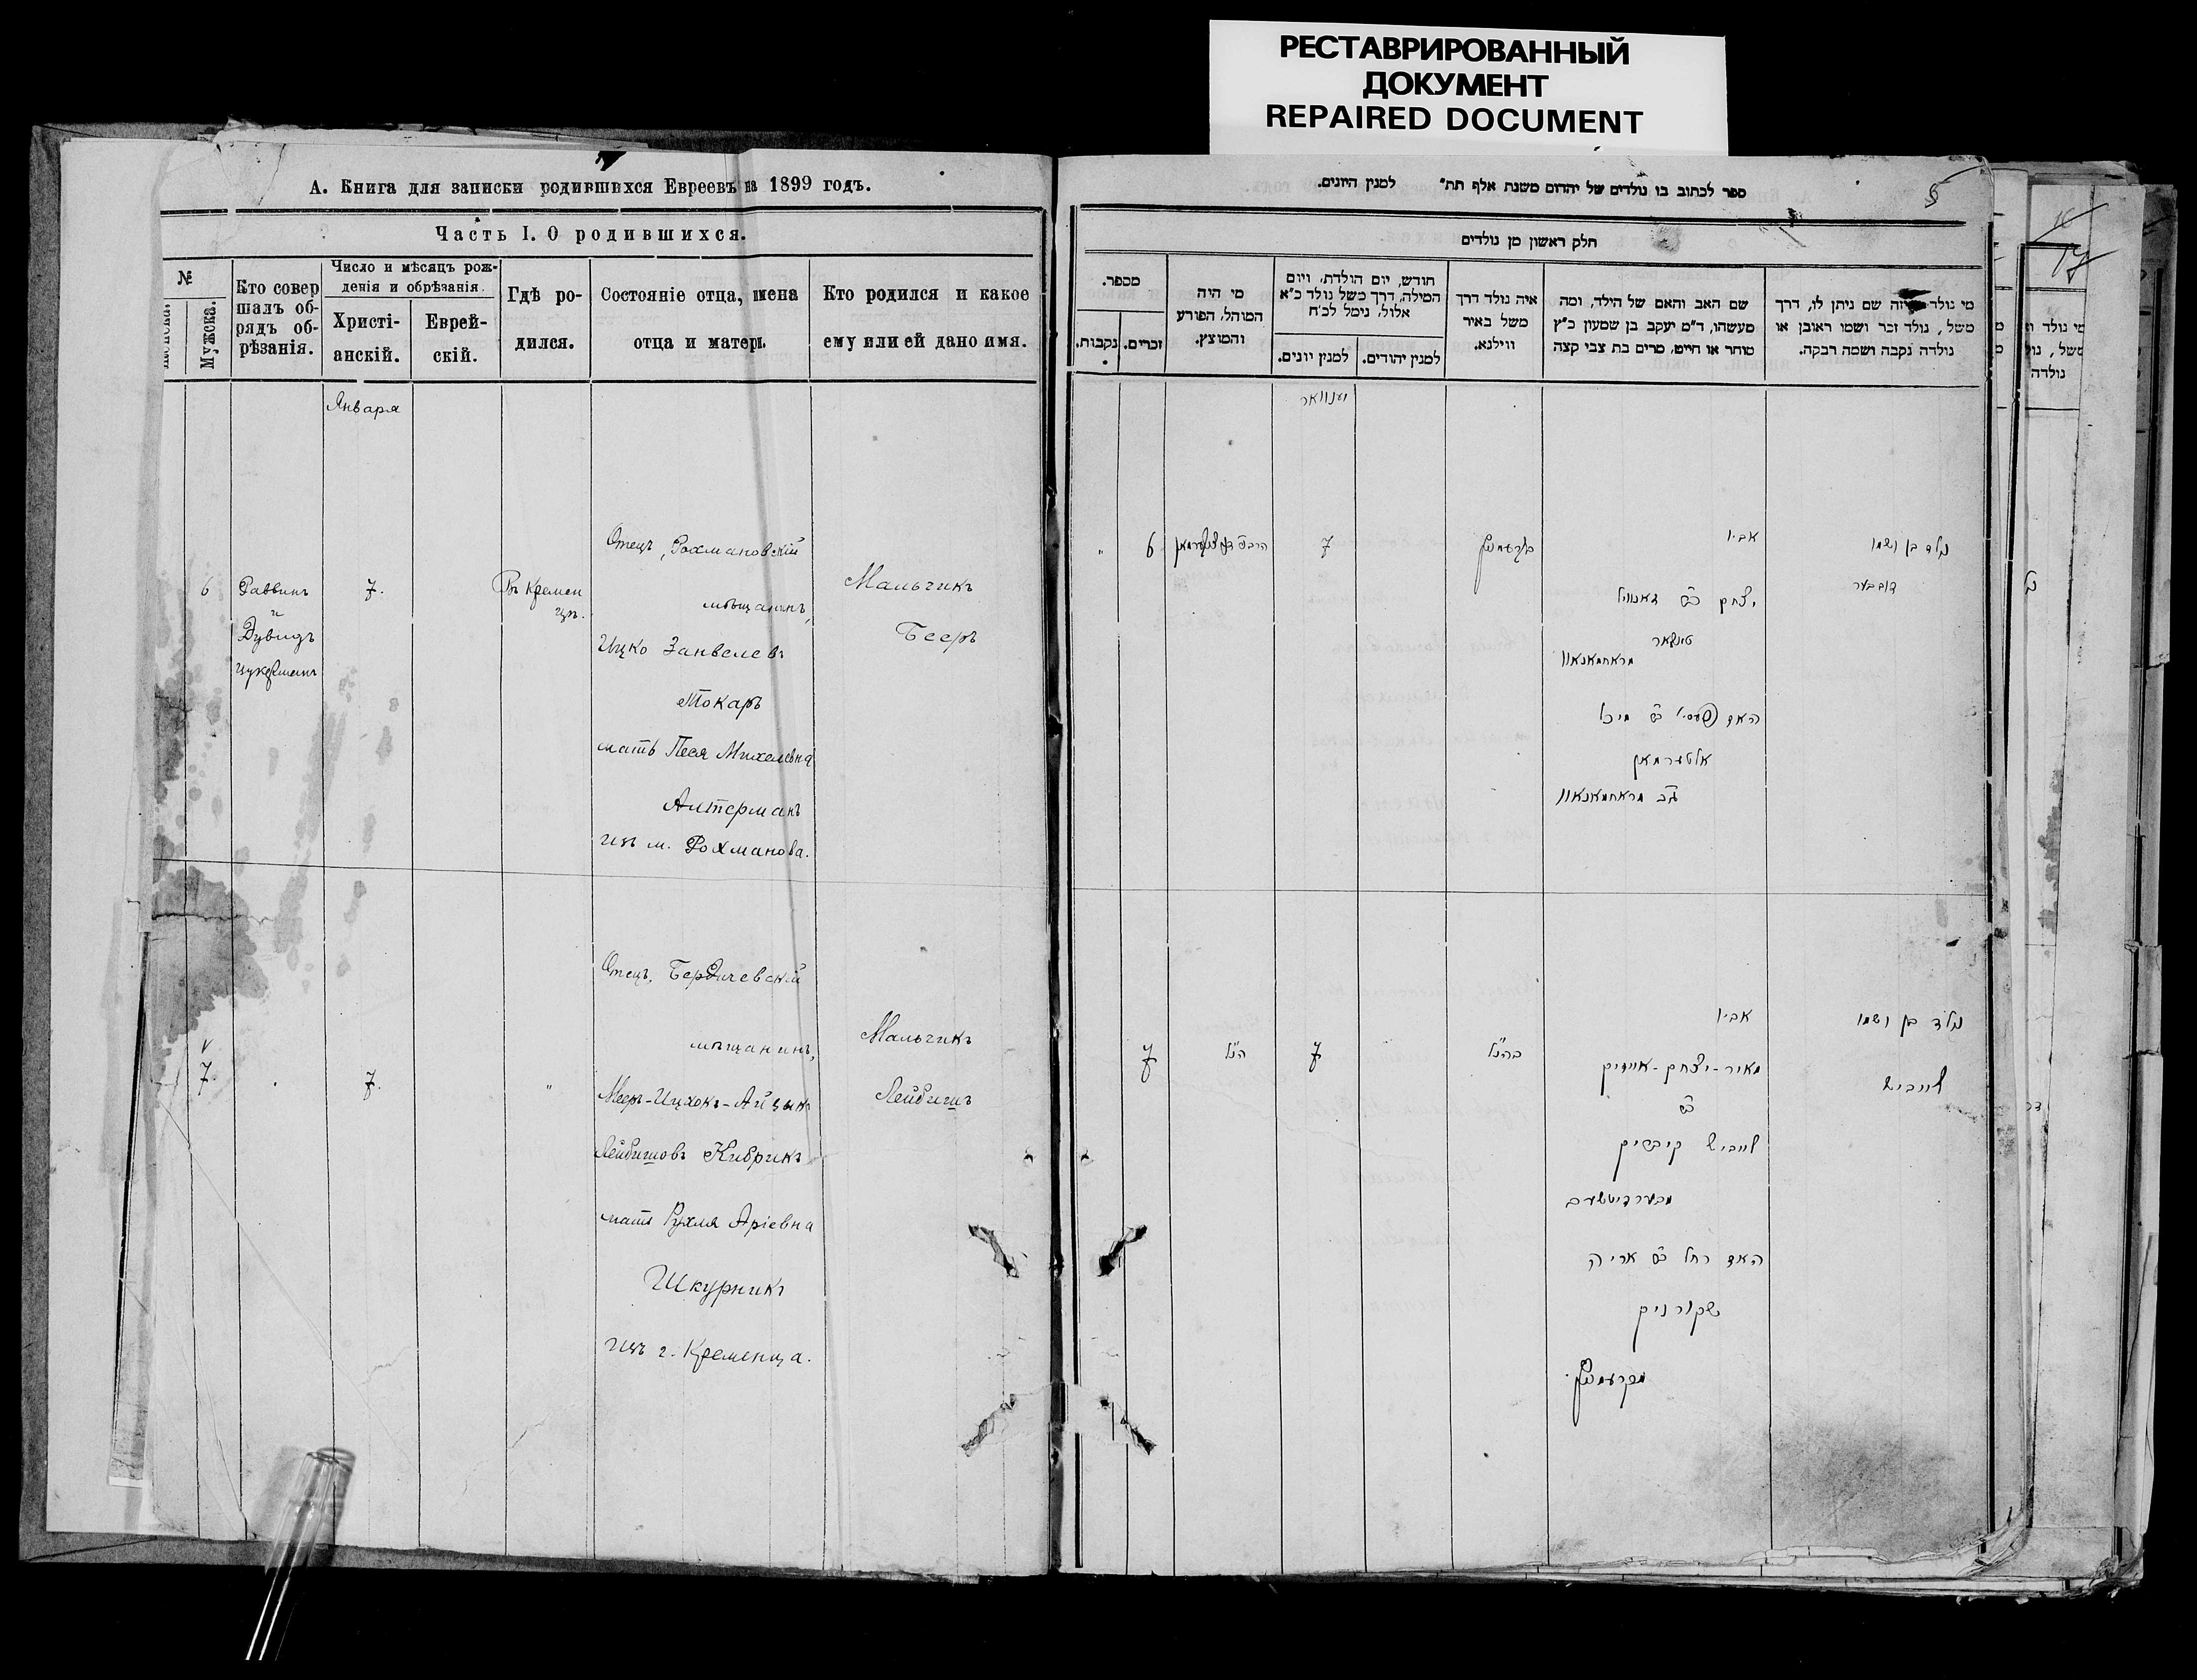 РЕСТАВРИРОВАННЫЙ
ДОКУМЕНТ
REPAIRED DOCUMENT
А. Книга для записки родившихся Евреевъ на 1899 годъ.
Часть I. О родившихся.
№
Мужска.
Кто совер
шалъ об-
рядъ об-
рѣзанія.
Число и мѣсяцъ рож-
денія и обрѣзанія.
Христі-
анскій.
Еврей-
скій.
Гдѣ ро-
дился.
Состояніе отца, имена
отца и матери.
Кто родился и какое
ему или ей дано имя.
Января
6
Раввинъ
и
Дувидъ
Цукерманъ
7.
Въ Кремен
цѣ.
Отецъ, Рохмановскій
мѣщанинъ,
Ицко Занвелевъ
Токарь
мать Песя Михелевна
Алтерманъ
изъ м. Рохманова.
Мальчикъ
Бееръ
7.
7.
"
Отецъ, Бердичевскій
мѣщанинъ,
Мееръ-Ицхокъ-Айзыкъ
Лейбишовъ Кибрикъ
мать Рухля Аріевна
Шкурникъ
изъ г. Кременца.
Мальчикъ
Лейбишъ
ספר לכתוב בו נולדים של יהודים משנת אלף תת" למנין היונים.
5
חלק ראשון מן נולדים
מספר.
נקבות.
זכרים.
מי היה
המוהל, הפורע
והמוצץ.
חודש, יום הולדת, ויום
המילה, דרך משל נולד כ"א
אלול, נימל לכ"ח
למנין יונים.
למנין יהודים.
איה נולד דרך
משל באיר
ווילנא.
שם האב והאם של הילד, ומה
מעשהו, ד"מ יעקב בן שמעון כ"ץ
סוחר או חייט, מרים בת צבי קצה
מי נולד
שם ניתן לו, דרך
משל, נולד זכר ושמו ראובן או
נולדה נקבה ושמה רבקה.
יענוואר
"
6
7
קרעמניץ
אביו
יצחק ב"ר זאנוויל
טאקאר
מראחמאנאוו
האם פעסי ב"ר מיכל
אלטערמאן
מראחמאנאוו
נולד בן ושמו
דובבער
7
הנ"ל
7
כהנ"ל
אביו
מאיר-יצחק-אייזיק
ב"ר
לייביש קיבריק
מבערדיטשעב
האם רחל ב"ר אריה
שקורניק
מקרעמניץ.
נולד בן ושמו
לייביש
17